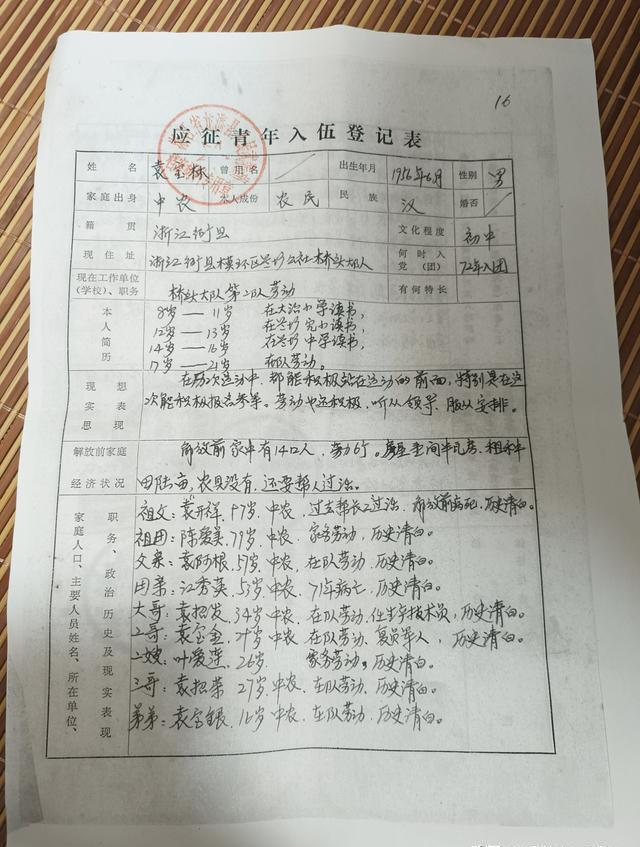 16
应征青年入伍登记表
姓名 袁宝林 曾用名 ／ 出生年月 1956年6月 性别 男
家庭出身 中农 本人成份 农民 民族 汉 婚否 ／
籍贯 浙江衢县 文化程度 初中
现住址 浙江衢县模环区 公社桥头大队 何时入党(团) 72年入团
现在工作单位(学校)、职务 桥头大队第二队劳动 有何特长
本人简历
8岁——11岁 在大治小学读书,
12岁——13岁 完小读书,
14岁——16岁 中学读书,
17岁——21岁 在队劳动。
思想现实表现
在历次运动中,都能积极站在运动的前面,特别是在这
次能积极报名参军。劳动也还积极,听从领导,服从安排。
解放前家庭经济状况
解放前家中有14口人,劳动6个。房屋 间半瓦房,租种
田陆亩,农具没有,还要帮人过活。
家庭人口、主要人员姓名、所在单位、职务、政治历史及现实表现
祖父:袁开祥,97岁,中农,过去帮长工过活,解放前病死,历史清白。
祖母:陈爱英,79岁,中农,家务劳动,历史清白。
父亲:袁阿根,57岁,中农,在队劳动,历史清白。
母亲:江秀英,53岁,中农,71年病亡,历史清白。
大哥:袁松发,34岁,中农,在队劳动,任 技术员,历史清白。
二哥:袁宝金,29岁,中农,在队劳动、复员军人,历史清白。
二嫂:叶爱莲,26岁,家务劳动,历史清白。
三哥:袁松荣,27岁,中农,在队劳动,历史清白。
弟弟:袁宝银,16岁,中农,在队劳动,历史清白。